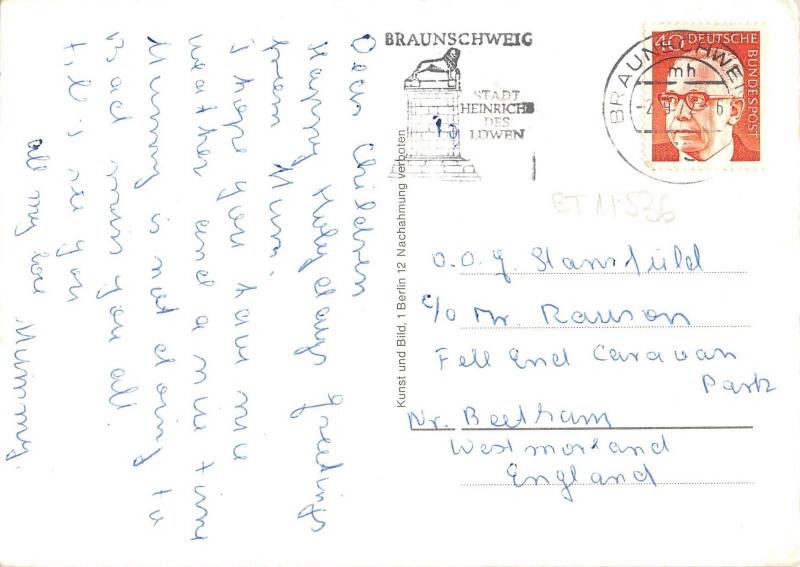 Dear Children
Happy Holydays greetings
from Mum.
I hope you have nice
weather and a nice time
Mummy is not doing to
bad miss you all
till I see you
all my love
Mummy.
BRAUNSCHWEIG
STADT
HEINRICHS
DES
LÖWEN
BRAUNSCHWEIG
mh
40 DEUTSCHE
BUNDESPOST
Kunst und Bild, 1 Berlin 12 Nachahmung verboten
BT 11-536
Stansfield
c/o Mr. Rawson
Fell End Caravan
Park
Nr. Beetham
Westmorland
England